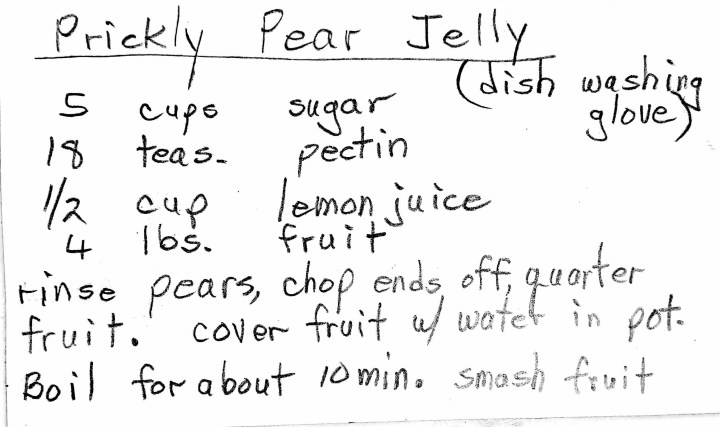 Prickly Pear Jelly
(dish washing
glove)
5 cups sugar
18 teas. pectin
1/2 cup lemon juice
4 lbs. fruit
rinse pears, chop ends off, quarter
fruit. cover fruit w/ water in pot.
Boil for about 10 min. smash fruit